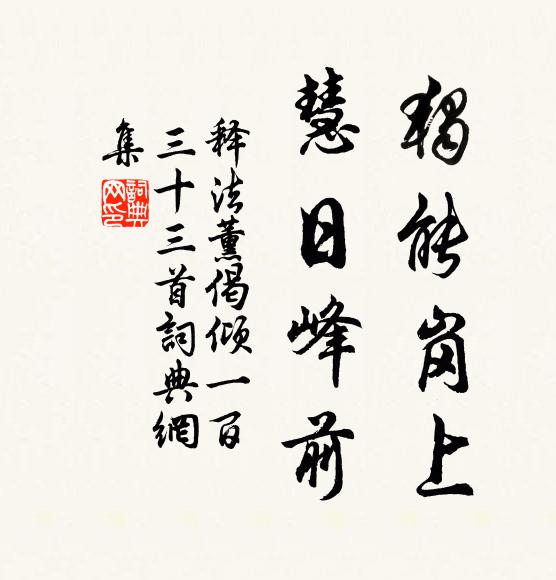 獨龍崗上
慧日峰前
释法薰偈倾一百
三十三首詞典網
集
詞典网印